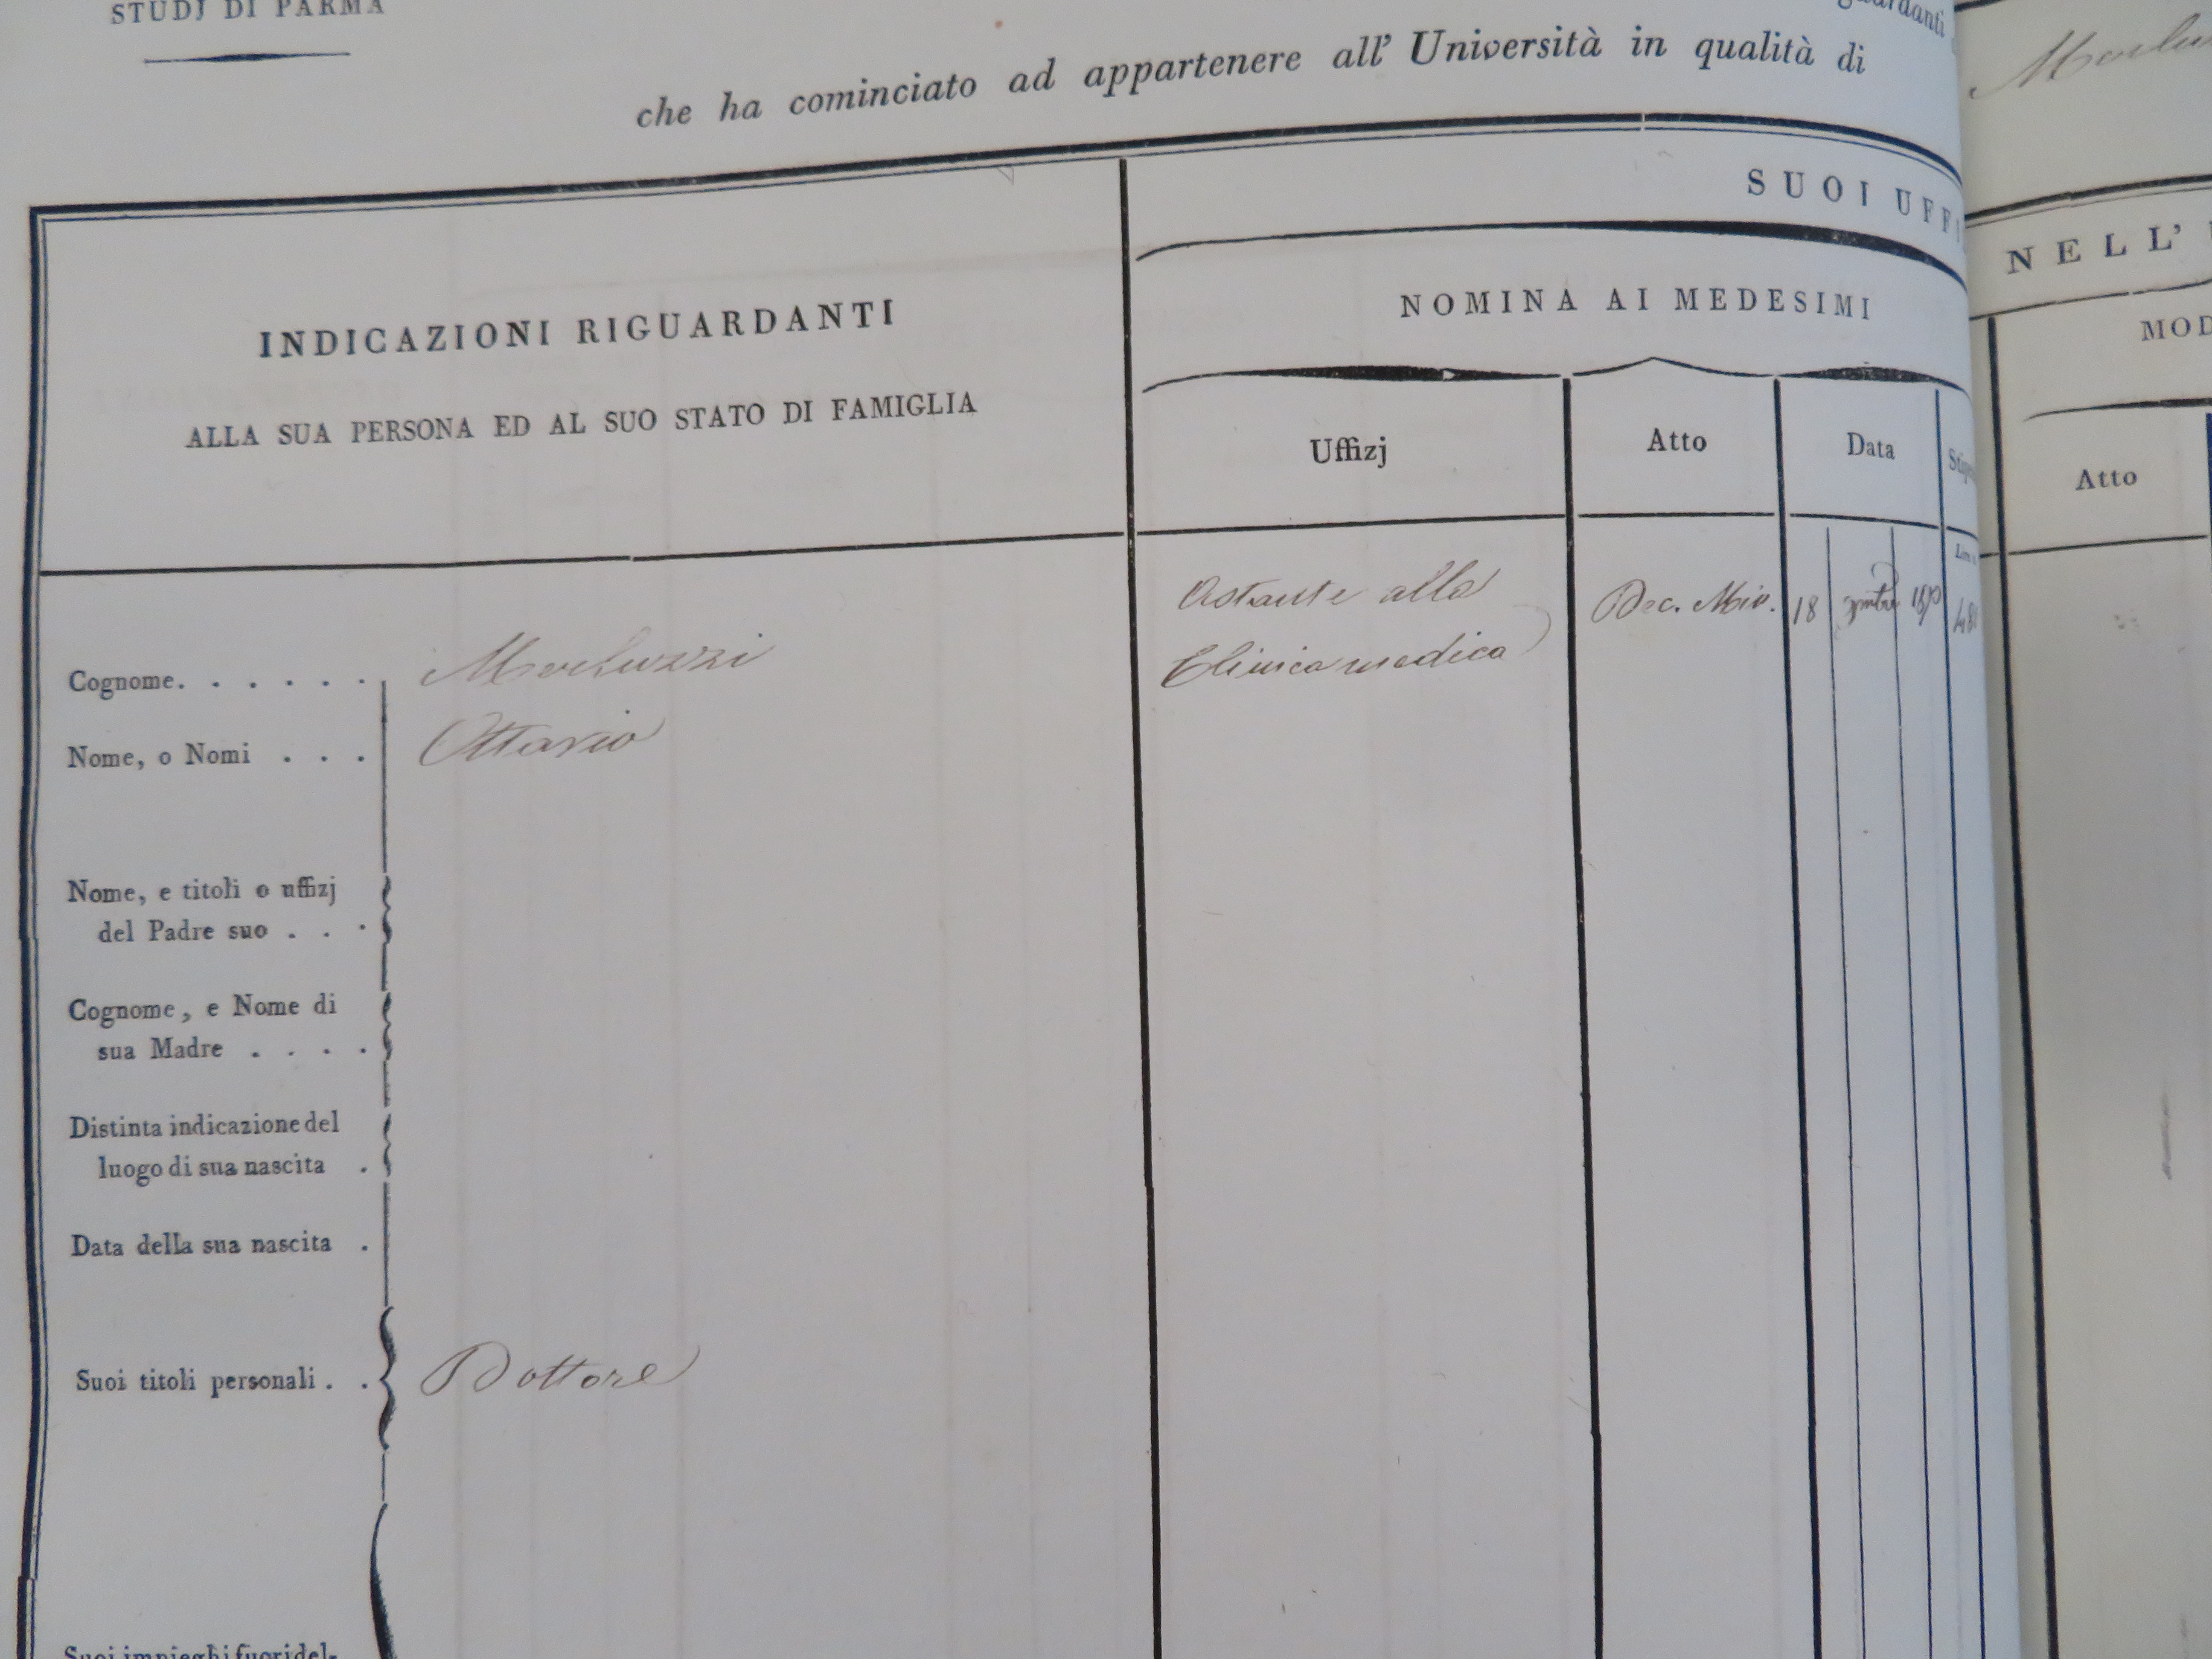 STUDJ DI PARMA
guardanti
che ha cominciato ad appartenere all' Università in qualità di
SUOI UFFI
NELL'
INDICAZIONI RIGUARDANTI
ALLA SUA PERSONA ED AL SUO STATO DI FAMIGLIA
NOMINA AI MEDESIMI
MOD
Uffizj
Atto
Data
Atto
Astante alla
Clinica medica
Dec. Min.
18
Cognome. . . . . . .
Nome, o Nomi . . .
Ottavio
Nome, e titoli o uffizj
del Padre suo . . .
Cognome, e Nome di
sua Madre . . . .
Distinta indicazione del
luogo di sua nascita .
Data della sua nascita .
Suoi titoli personali . .
Dottore
Suoi impieghi fuori del-